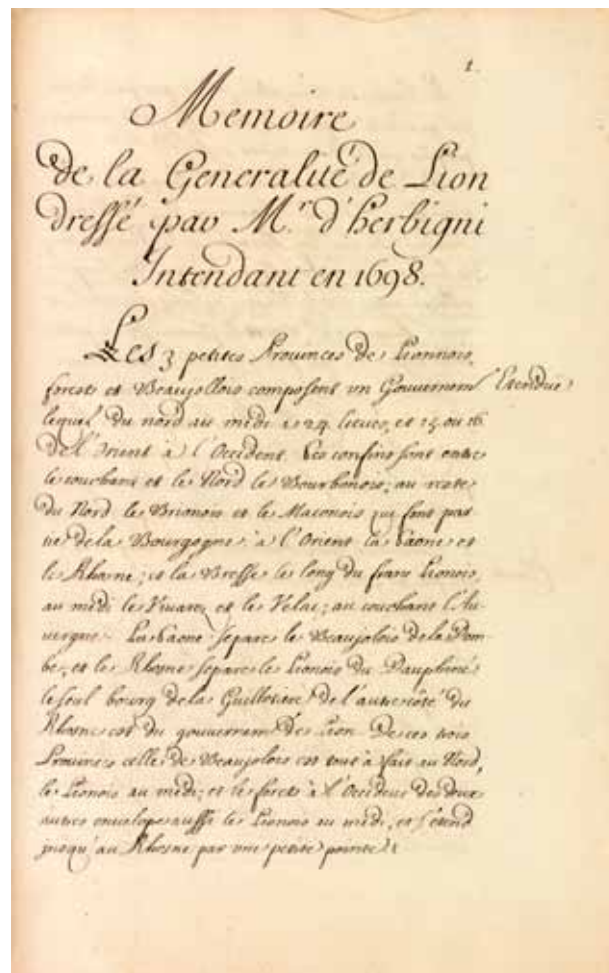 1.
Memoire
de la Generalité de Lion
dressé par M.r d'herbigni
Intendant en 1698.
Les 3 petites Prouinces de Lionnois,
forest et Beaujollois composent vn Gouvernem.t Etendüe
lequel du nord au midi a 24. lieues, et 15 ou 16
de l'Orient à l'Occident. Les confins sont entre
le couchant et le Nord le Bourbonois; au reste
du Nord le Brionois et le Maconois qui font par
tie de la Bourgogne. à l'Orient la Saone et
le Rhosne; et la Bresse le long du franc Lionois,
au midi le Vivarez et le Velai; au couchant l'Au-
uergne. La Saone separe le Beaujolois de la Dom-
be, et le Rhosne separe le Lionois du Dauphiné
le seul bourg de la Guillotiere de l'autre côté du
Rhosne est du gouvernem.t de Lion. De ces trois
Prouinces celle de Beaujolois est tout à fait au Nord,
le Lionois au midi; et le forets à l'Occident des deux
autres envelope aussi le Lionois au midi, et s'étend
jusqu'au Rhosne par vne petite pointe.